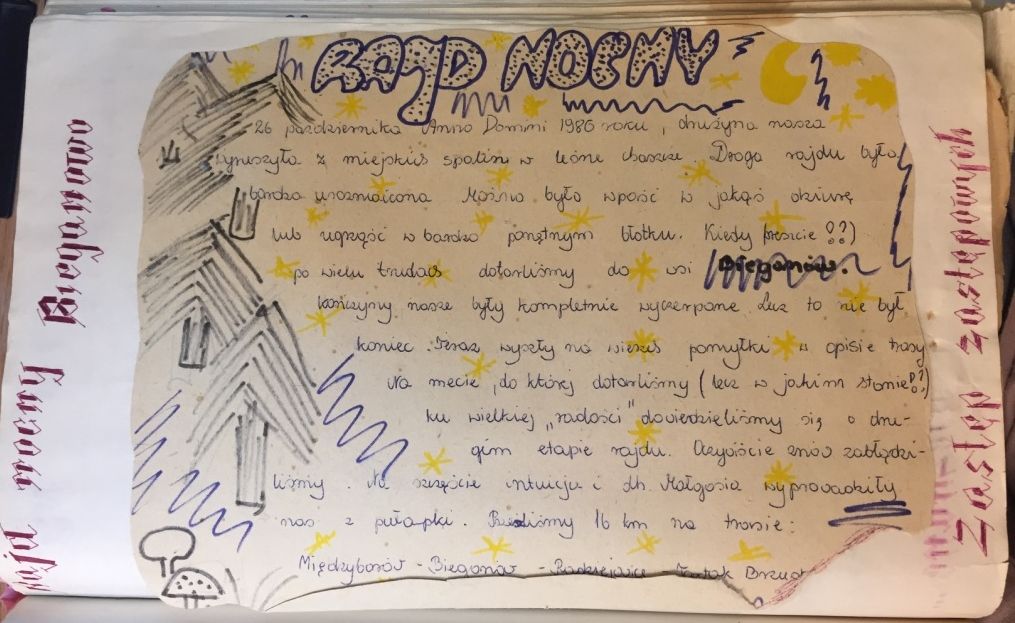 RAJD NOCNY
26 października Anno Domini 1986 roku, drużyna nasza
wyruszyła z miejskiś spalin w leśne chaszcze. Droga rajdu była
bardzo urozmaicona Można było wpaść w jakąś dziurę
lub ugrzęść w bardzo ponętnym błotku. Kiedy (wreszcie !?)
po wielu trudach dotarliśmy do wsi Bieganów.
kończyny nasze były kompletnie wyczerpane. Lecz to nie był
koniec. Teraz wyszły na wierzch pomyłki w opisie trasy
Na mecie, do której dotarliśmy (lecz w jakim stanie!?)
ku wielkiej „radości" dowiedzieliśmy się o dru-
gim etapie rajdu. Oczywiście znów zabłądzi-
liśmy. Na szczęście intuicja i dh. Małgosia wyprowadziły
nas z pułapki. 16 km na trasie:
Międzyborów - Bieganów - Radziejowice -
Rajd nocny Bieganowo
Zastęp zastępowych